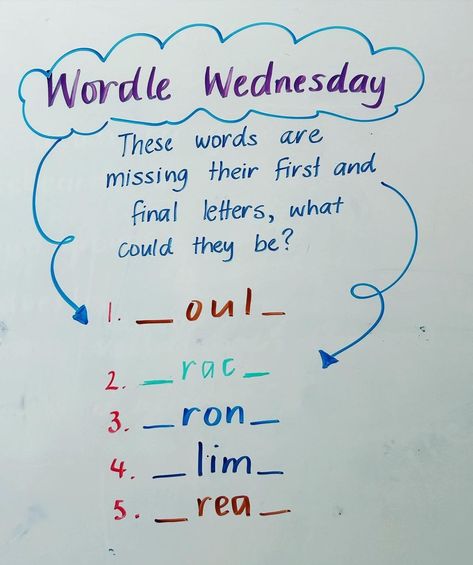 Wordle Wednesday
These words are
missing their first and
final letters, what
could they be?
1. _oul_
2. _rac_
3. _ron_
4. _lim_
5. _rea_